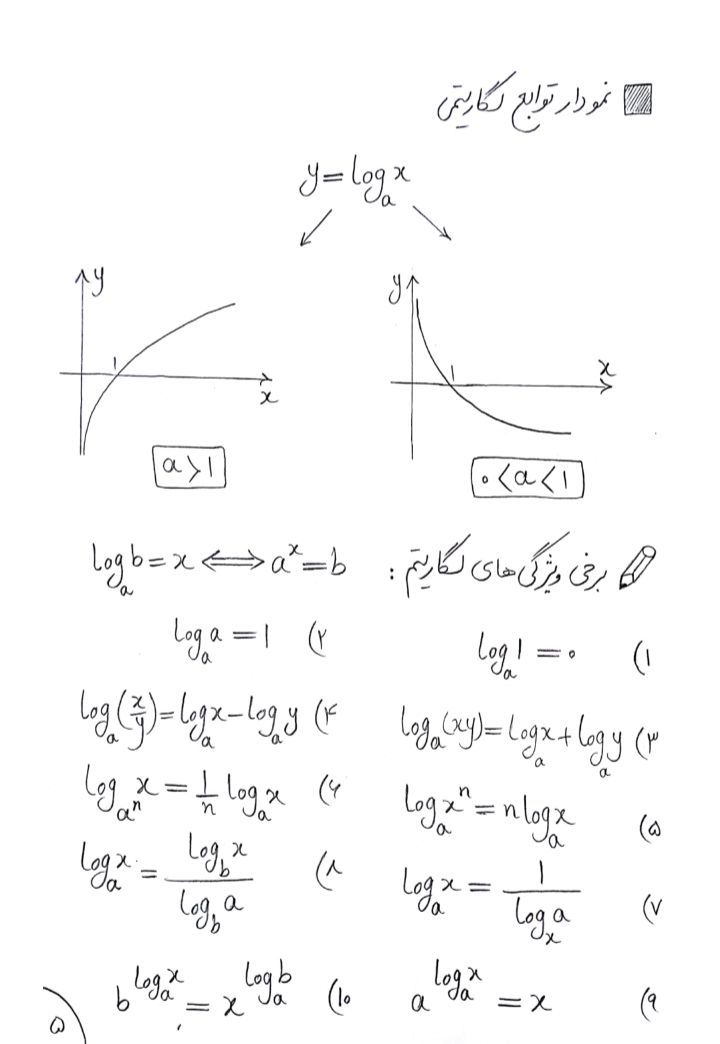 نمودار توابع لگاریتمی
y = log_a x
y
x
۱
a > ۱
y
x
۱
۰ < a < ۱
برخی ویژگی‌های لگاریتم : log_a b = x ⟺ a^x = b
۱) log_a ۱ = ۰
۲) log_a a = ۱
۳) log_a (xy) = log_a x + log_a y
۴) log_a (x/y) = log_a x − log_a y
۵) log_a x^n = n log_a x
۶) log_{a^n} x = ۱/n log_a x
۷) log_a x = ۱ / log_x a
۸) log_a x = log_b x / log_b a
۹) a^{log_a x} = x
۱۰) b^{log_a x} = x^{log_a b}
۵